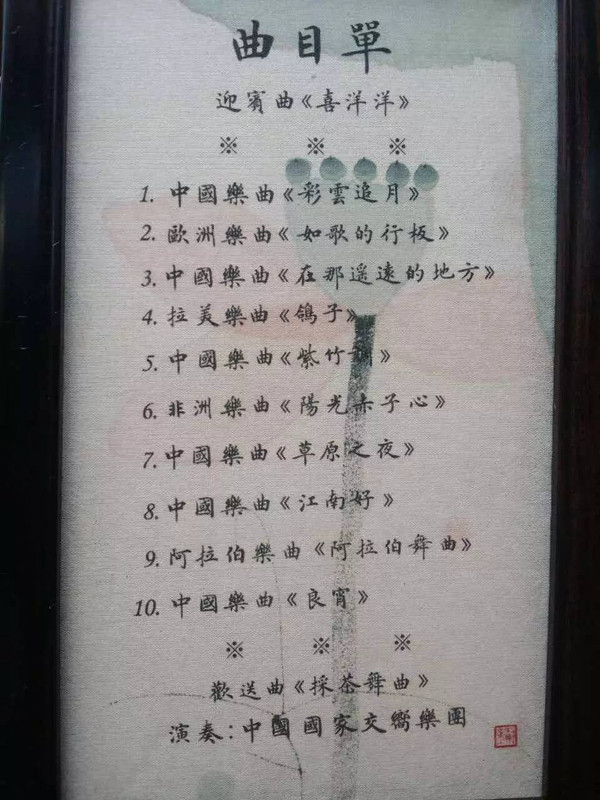 曲目單
迎賓曲《喜洋洋》
※ ※ ※
1. 中國樂曲《彩雲追月》
2. 歐洲樂曲《如歌的行板》
3. 中國樂曲《在那遥遠的地方》
4. 拉美樂曲《鴿子》
5. 中國樂曲《紫竹調》
6. 非洲樂曲《陽光赤子心》
7. 中國樂曲《草原之夜》
8. 中國樂曲《江南好》
9. 阿拉伯樂曲《阿拉伯舞曲》
10. 中國樂曲《良宵》
※ ※ ※
歡送曲《採茶舞曲》
演奏:中國國家交嚮樂團